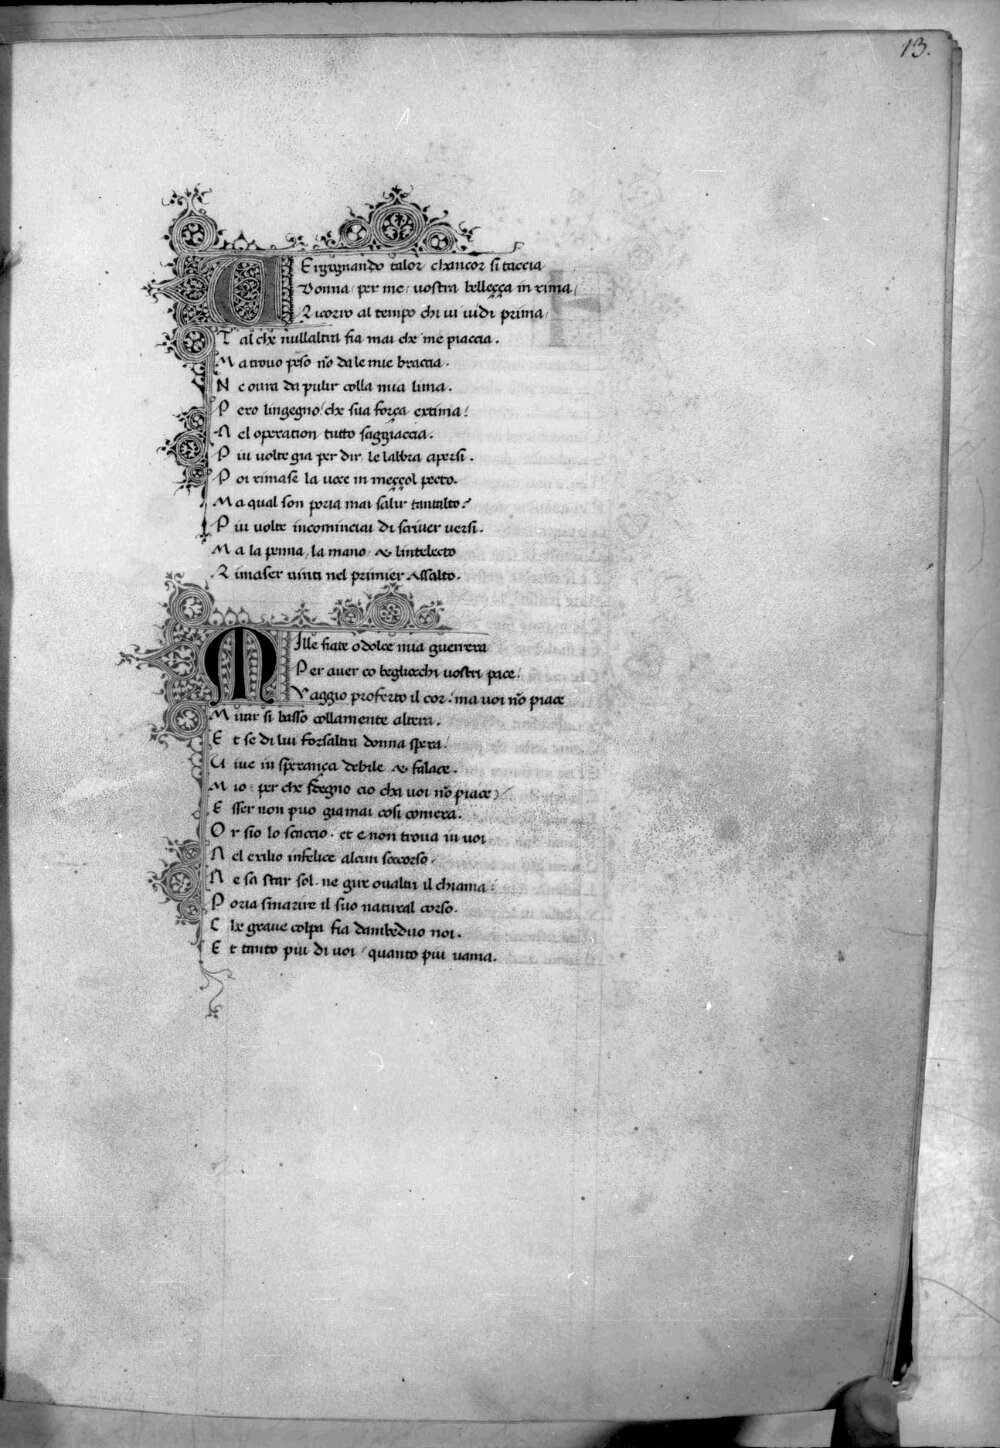 13.
VErgognando talor chancor si taccia
Donna per me vostra belleçça in rima
Ricorro al tempo chi vi vidi prima
Tal che nullaltra fia mai che me piaccia.
Ma trovo peso nõ da le mie braccia.
Ne ovra da pulir colla mia lima.
Pero lingegno che sua força extima
Nel operation tutto saggiaccia.
Piu volte gia per dir le labbra apersi.
Poi rimase la voce in meççol pecto.
Ma qual son poria mai salir tantalto?
Piu volte incominciai di scriver versi.
Ma la penna la mano & lintelecto
Rimaser vinti nel primier Assalto.
MIlle fiate o dolce mia guerrera
Per aver co begliocchi vostri pace
Vaggio proferto il cor. ma voi nõ piace
Mirar si basso collamente altera.
Et se di lui forsaltra donna spera
Vive in sperança debile & falace.
Mio per che sdegno cio cha voi nõ piace
Esser non puo giamai cosi comera.
Or sio lo scaccio. et e non trova in voi
Nel exilio infelice alcun soccorso
Ne sa star sol. ne gire ovaltri il chiama
Poria smarire il suo natural corso.
Che grave colpa fia dambeduo noi.
Et tanto piu di voi quanto piu vama.